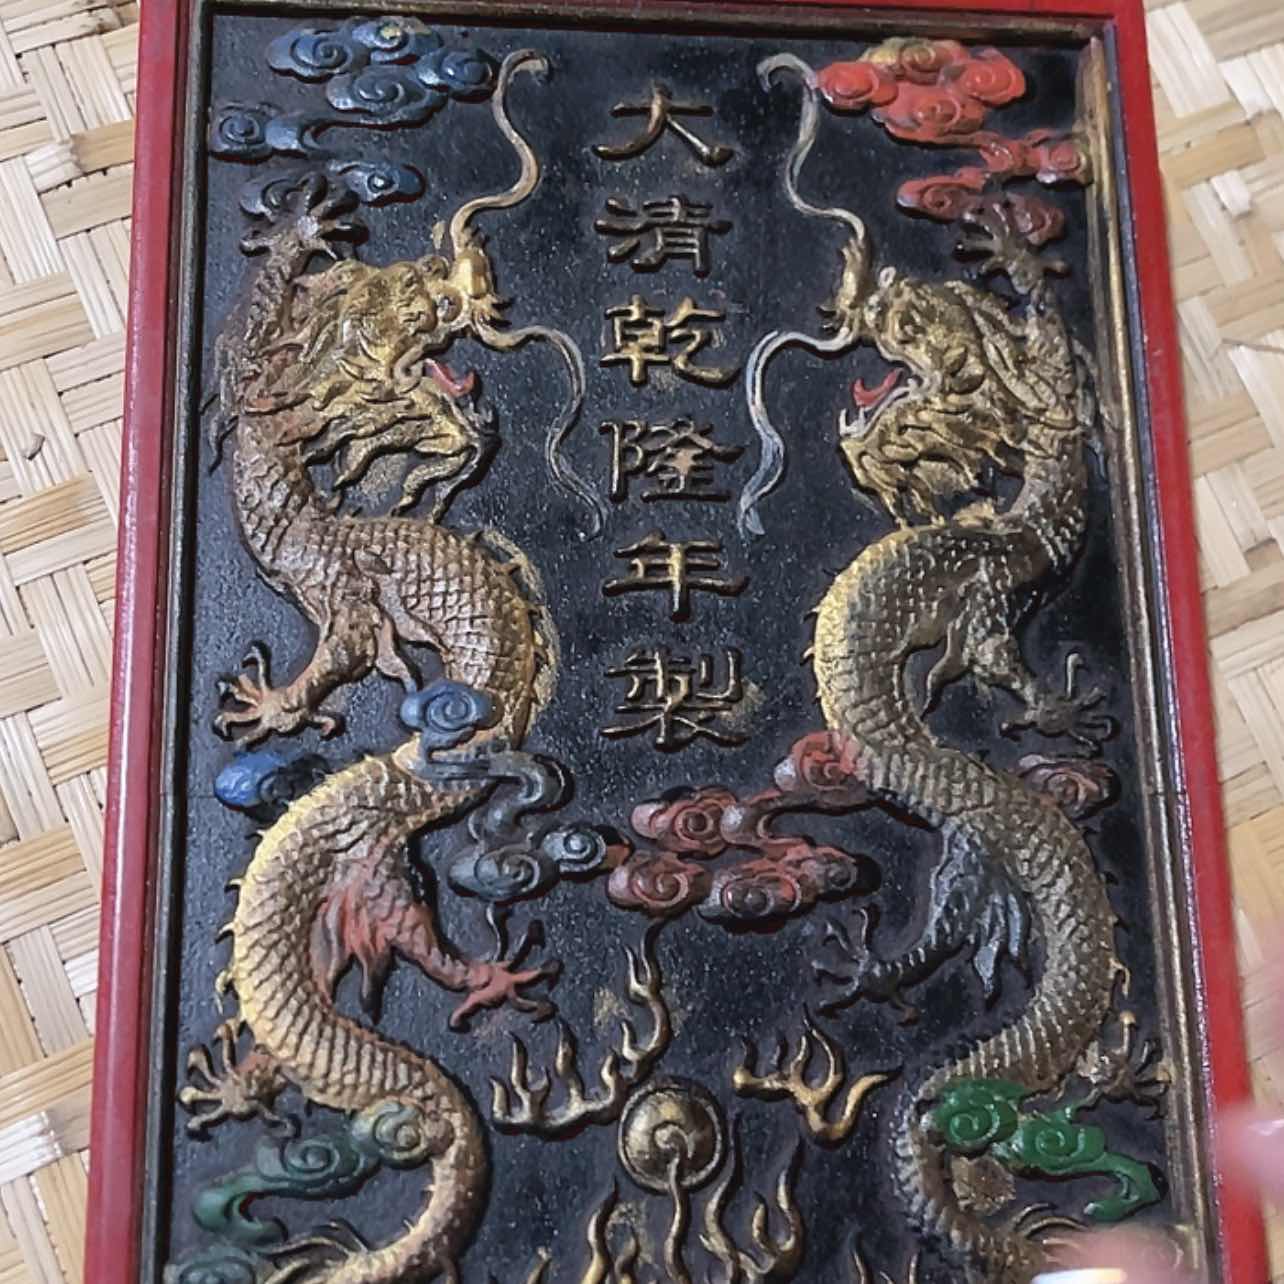 大清乾隆年製